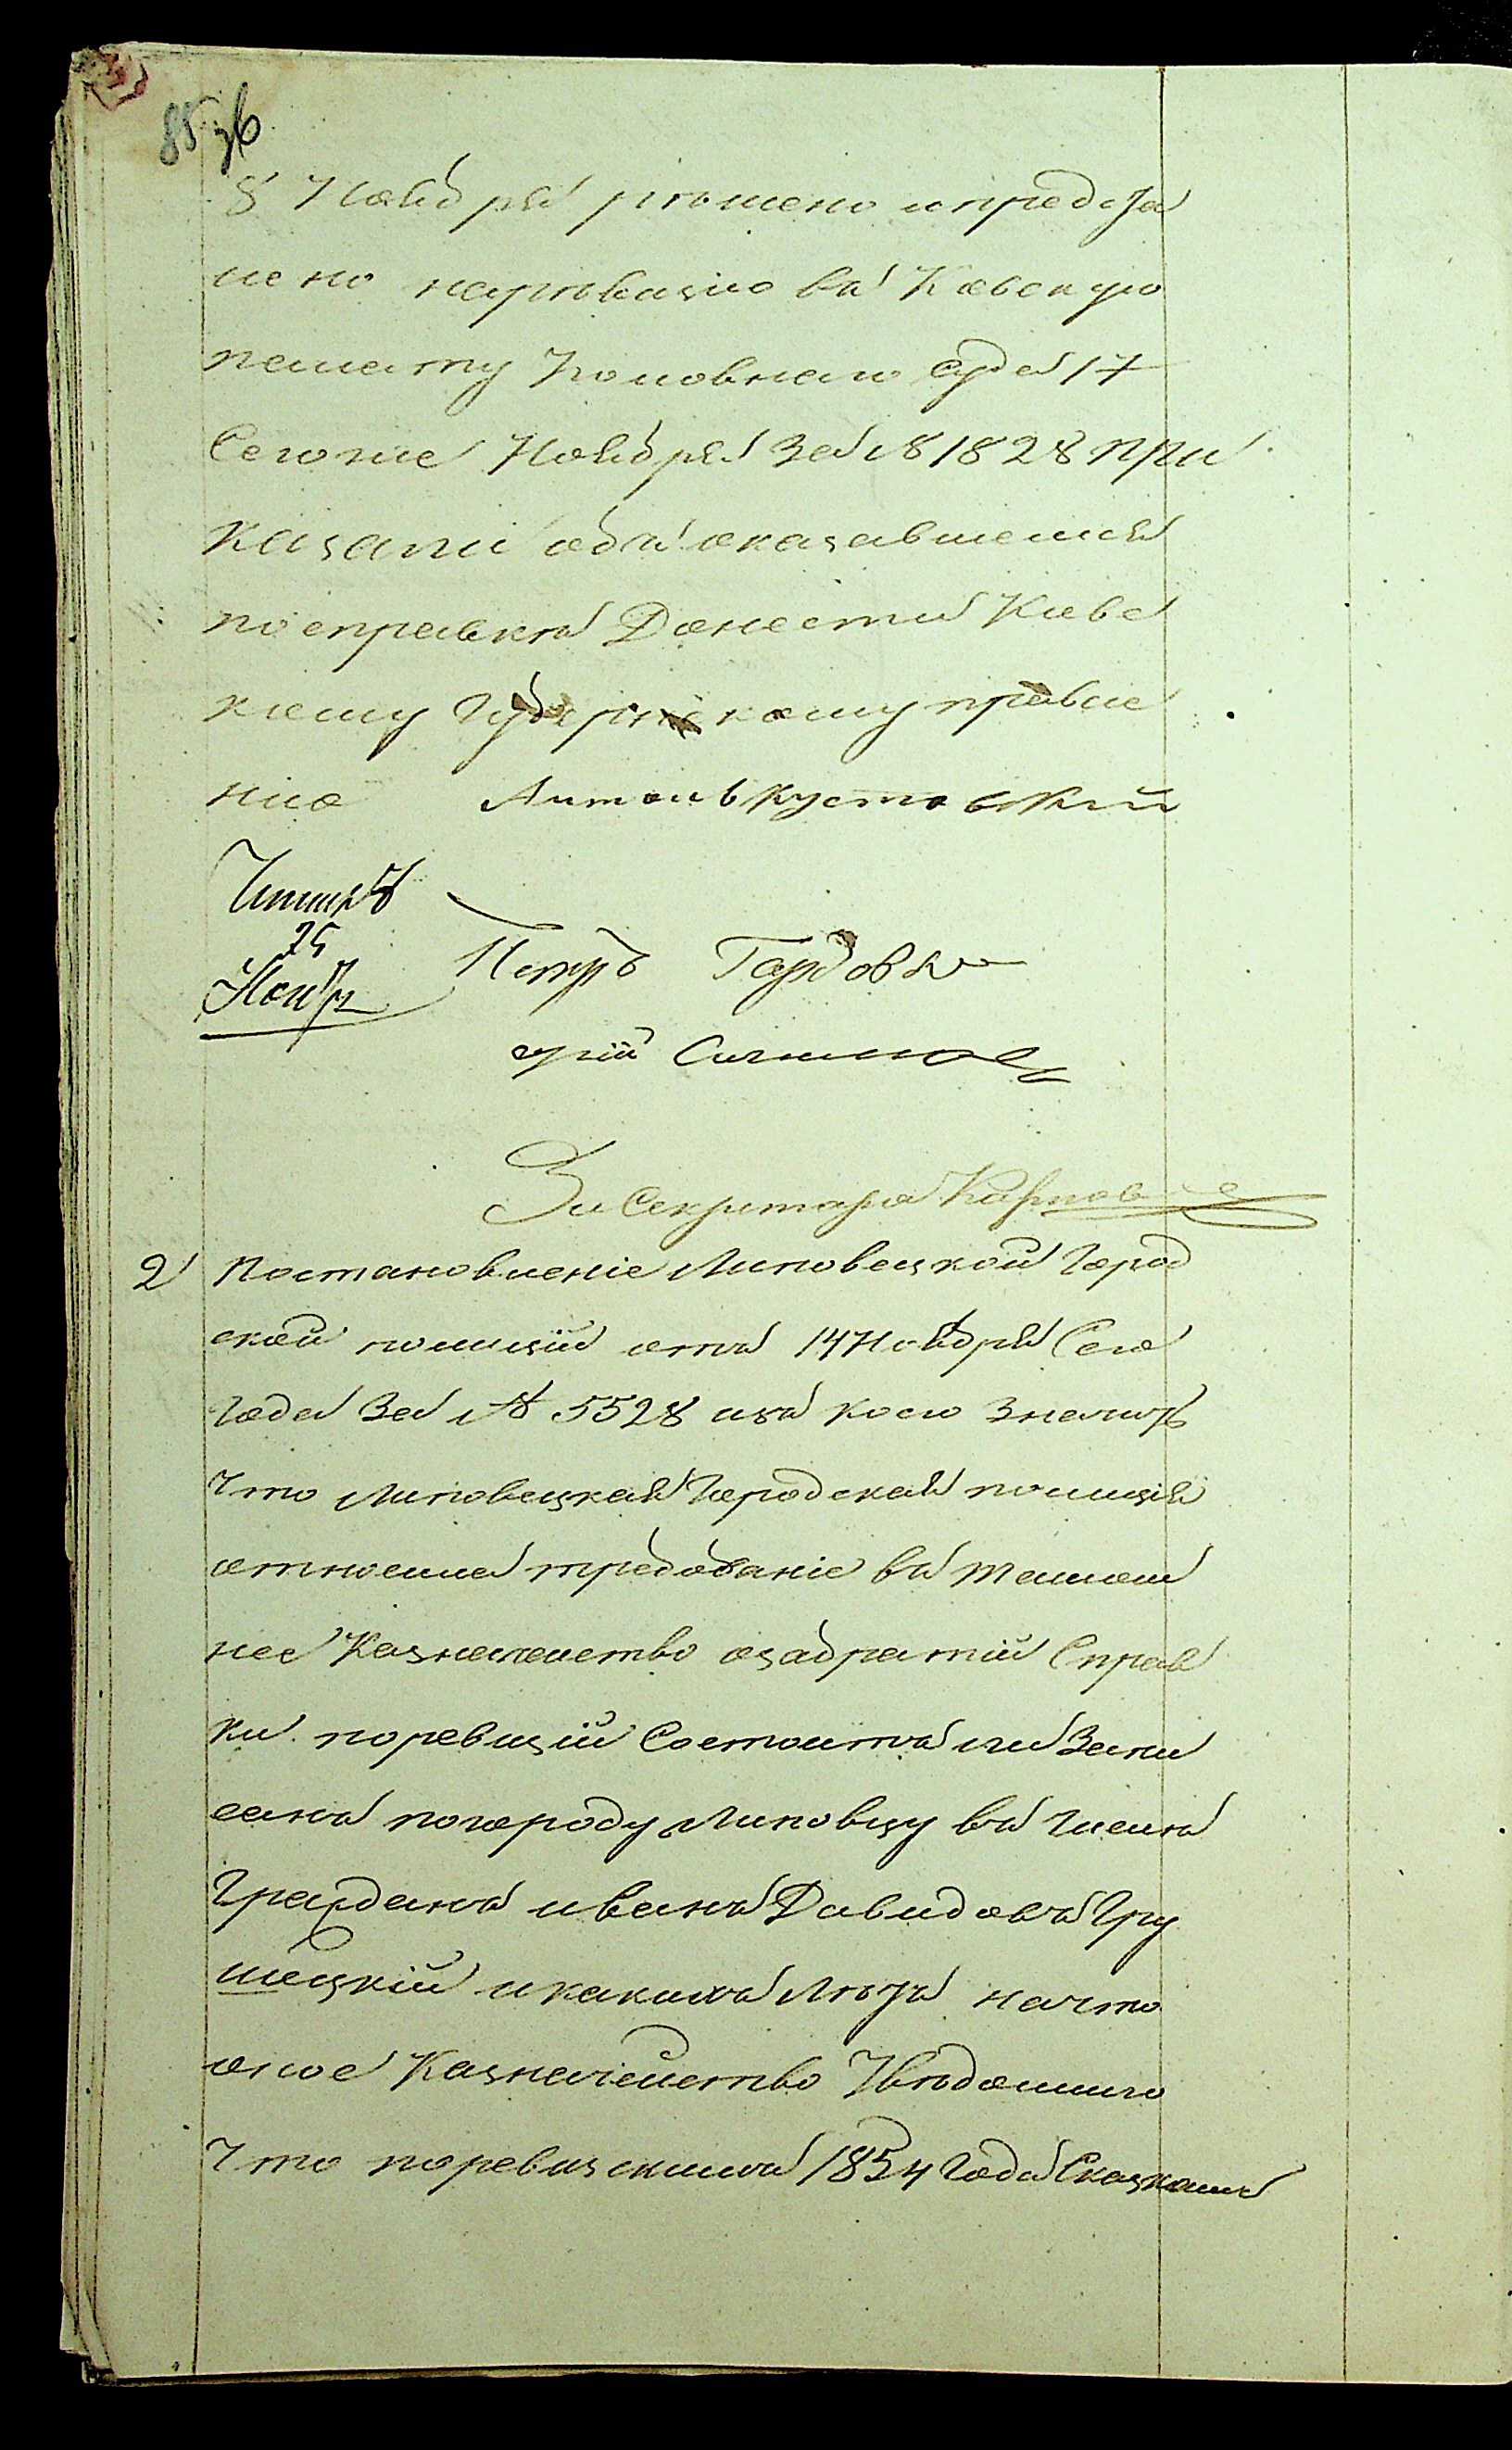 85 зб
8 Ноября решено и предста
лено наревизию въ Кіевскую
палату Уголовнаго суда 17
Сегоже Ноября за № 1828 при
казали объ оказавшемся
по справкѣ Донести Кіевс
кому Губернскому правле
нію Антонъ Кустовскій
Читалъ
25
Ноябр
Петръ
За Секретаря
2 Постановленіе Липовецкой Город
ской полиціи отъ 14 Ноября Сего
года За № 5528 изъ коего Значитъ
Что Липовецкая Городская полиція
относлa требованіе въ тамош
нее Казначейство озабратіи Справ
ки поревизіи Состоитъ ли Запи
санъ погороду Липовцу въ числѣ
Граждан Иванъ Давидовъ Гру
шецкій икакихъ Лѣтъ начто
оное Казначейство Увѣдомило
Что поревизскимъ 1854 года Сказкамъ